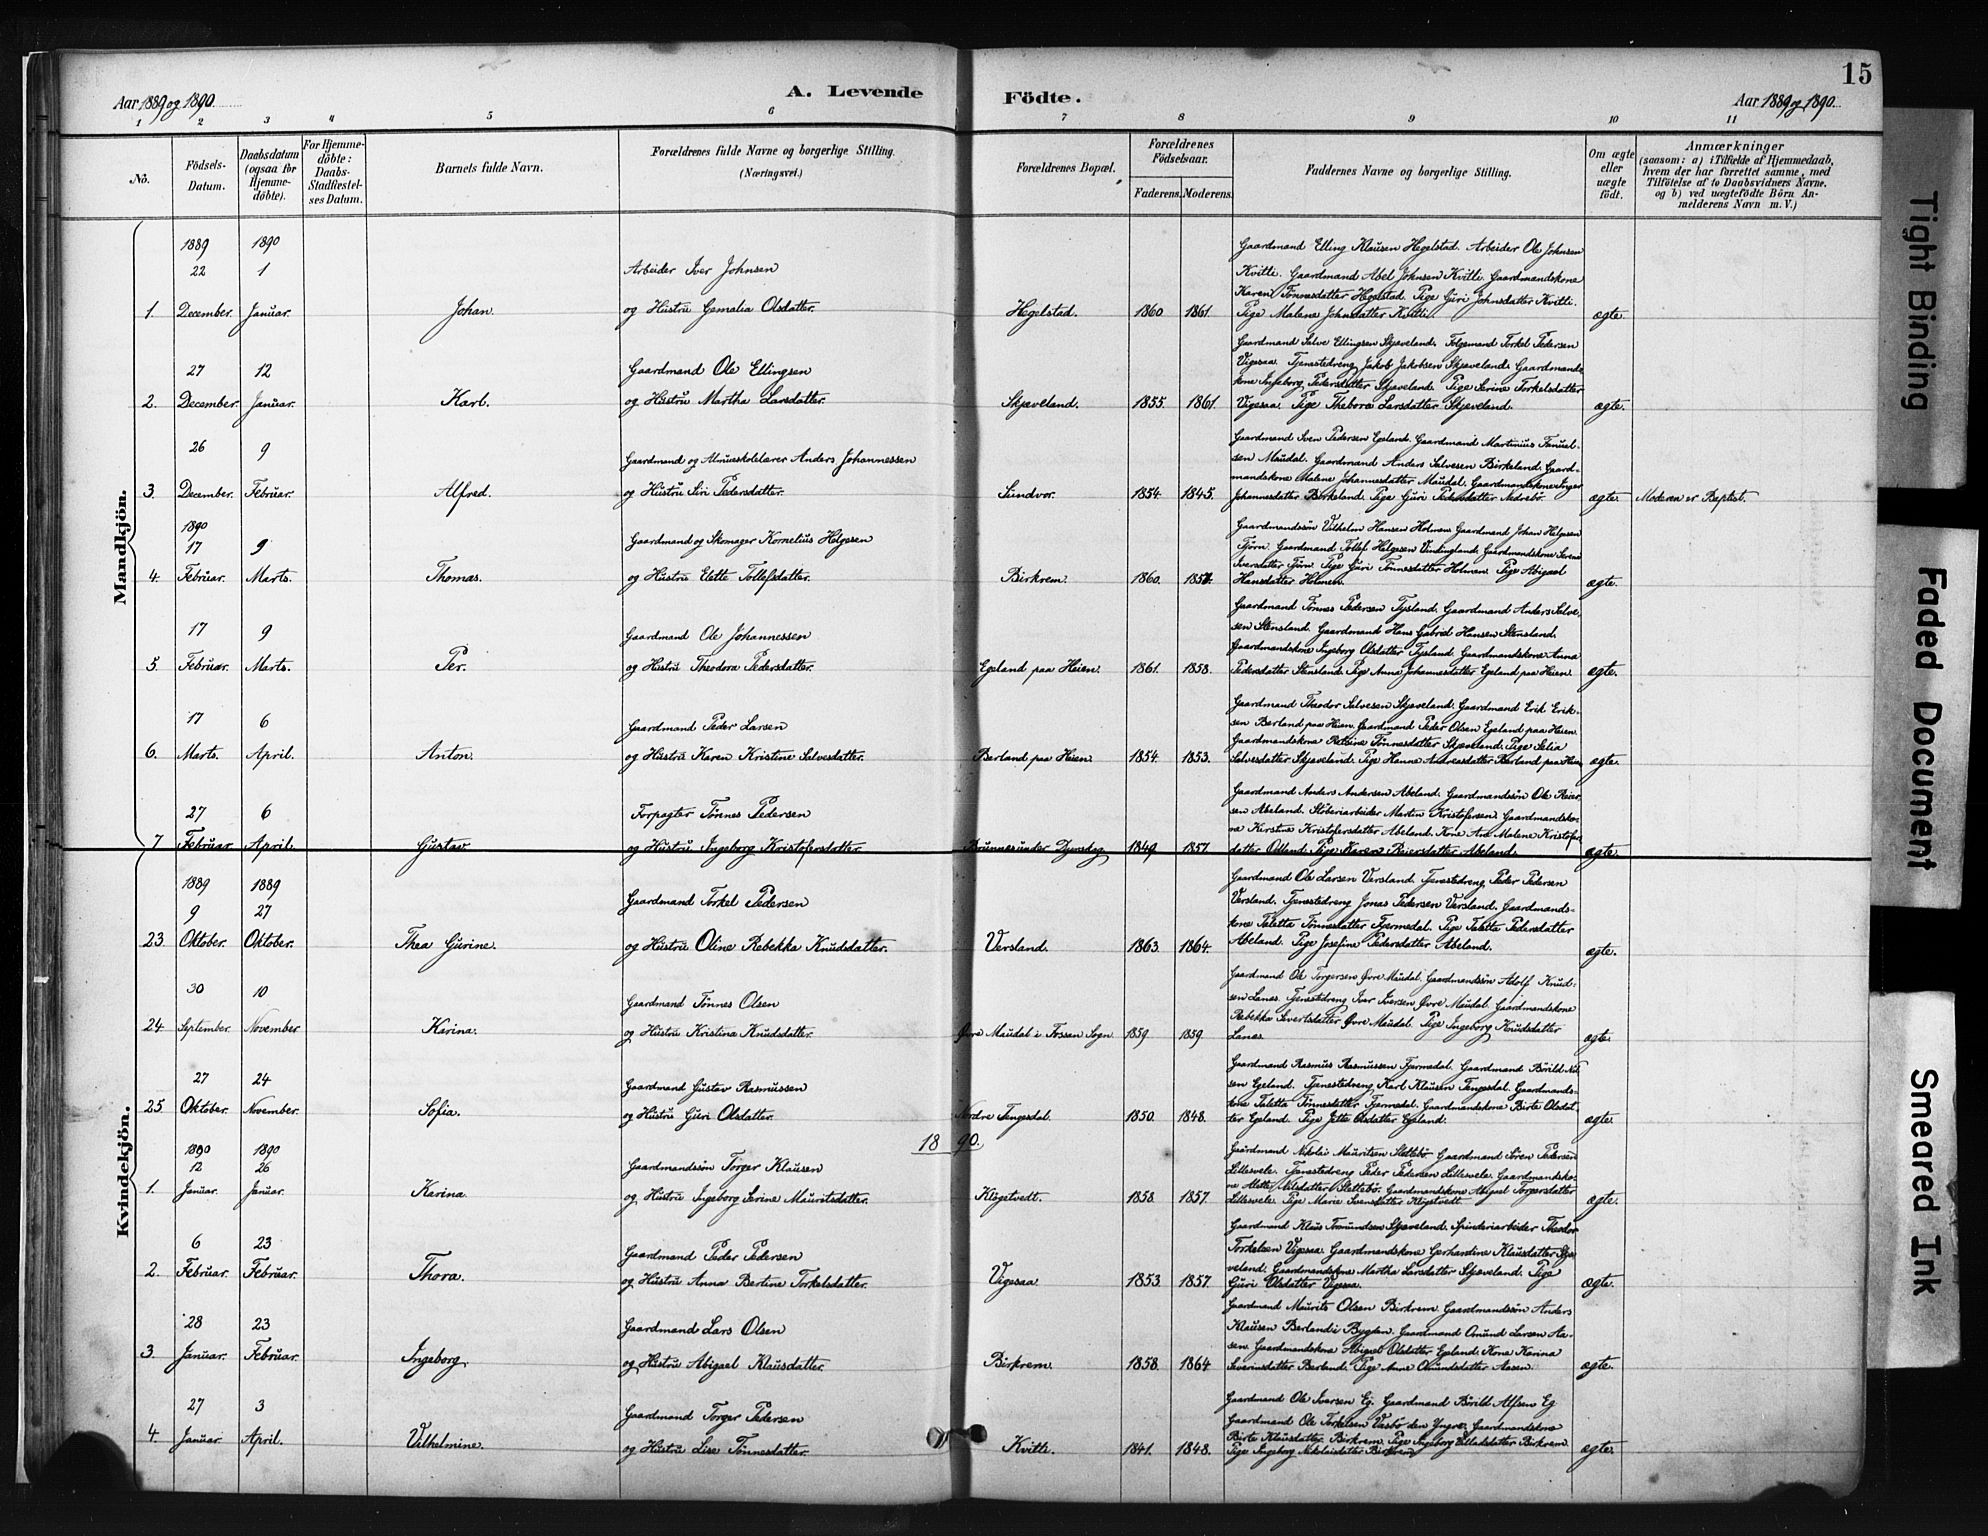 Aar 1889 og 1890.
A. Levende
Födte.
Aar 1889 og 1890.
15
1 2 3 4 5 6 7 8 9 10 11
No.
Födsels-Datum.
Daabsdatum (ogsaa for Hjemmedöbte).
For Hjemmedöbte: Daabs-Stadfæstelses Datum.
Barnets fulde Navn.
Forældrenes fulde Navne og borgerlige Stilling. (Næringsvei.)
Forældrenes Bopæl.
Forældrenes Födselsaar.
Faderens. Moderens.
Faddernes Navne og borgerlige Stilling.
Om ægte eller uægte födt.
Anmærkninger
(saasom: a) i Tilfælde af Hjemmedaab,
hvem der har forrettet samme, med
Tilföielse af to Daabsvidners Navne.
og b) ved uægtefödte Börn An-
melderens Navn m.V.)
Mandkjön.
1889 1890
22 1 Arbeider Iver Johnsen
1. December. Januar. Johan. og Hustru Gemalia Olsdatter. Hegelstad. 1860 1861. ægte
Gaardmand Elling Klausen Hegelstad. Arbeider Ole Johnsen
Kvitli. Gaardmand Abel Johnsen Kvitli. Gaardmandskone
Karen Tønnesdatter Hegelstad. Pige Guri Johnsdatter Kvitli.
Pige Malene Johnsdatter Kvitli.
27 12 Gaardmand Ole Ellingsen
2. December. Januar. Karl. og Hustru Martha Larsdatter. Skjæveland. 1855. 1861. ægte.
Gaardmand Salve Ellingsen Skjæveland. Følgemand Torkel Pedersen
Vigesaa. Tjenestedreng Jakob Jakobsen Skjæveland. Gaardmands-
kone Ingeborg Pedersdatter Skjæveland. Pige Serine Torkelsdatter
Vigesaa. Pige Thebora Larsdatter Skjæveland.
26 9 Gaardmand og Almueskolelærer Anders Johannessen
3. December. Februar. Alfred. og Hustru Siri Pedersdatter. Sundvor. 1854. 1845. ægte Moderen er Baptist.
Gaardmand Sven Pedersen Egeland. Gaardmand Martinius Tanuel-
sen Maudal. Gaardmand Anders Salvesen Birkeland. Gaard-
mandskone Malene Johannesdatter Maudal. Gaardmandskone Inger
Johannesdatter Birkeland. Pige Guri Pedersdatter Nedrebø.
1890
17 9 Gaardmand og Skomager Kornelius Helgesen
4. Februar. Marts. Thomas. og Hustru Elette Tollefsdatter. Birkrem. 1860. 1857. ægte.
Gaardmandssøn Vilhelm Hansen Holmen. Gaardmand Johan Helgesen
Tjørn. Gaardmand Tollef Helgesen Vindingland. Gaardmandskone Serena
Iversdatter Tjørn. Pige Guri Tønnesdatter Holmen. Pige Abigael
Hansdatter Holmen.
17 9 Gaardmand Ole Johannessen
5. Februar. Marts. Per. og Hustru Theodora Pedersdatter. Egeland paa Heien. 1861. 1858. ægte.
Gaardmand Tønnes Pedersen Tysland. Gaardmand Anders Salve-
sen Stensland. Gaardmand Hans Gabriel Hansen Stensland.
Gaardmandskone Ingeborg Olsdatter Tysland. Gaardmandskone Anna
Pedersdatter Stensland. Pige Anna Johannesdatter Egeland paa Heien.
17 6 Gaardmand Peder Larsen
6. Marts. April. Anton. og Hustru Karen Kristine Salvesdatter. Berland paa Heien. 1854. 1853. ægte.
Gaardmand Theodor Salvesen Skjæveland. Gaardmand Erik Erik-
sen Berland paa Heien. Gaardmand Peder Olsen Egeland paa Heien.
Gaardmandskone Retsine Tønnesdatter Skjæveland. Pige Selia
Salvesdatter Skjæveland. Pige Hanne Andreasdatter Berland paa Heien
27 6 Forpagter Tønnes Pedersen
7 Februar. April. Gustav og Hustru Ingeborg Kristofersdatter Brunnes under Dyrskog 1849. 1857 ægte.
Gaardmand Anders Andersen Abeland. Gaardmandssøn Ole Reier-
sen Abeland. Støberiarbeider Martin Kristofersen. Gaardmandsko-
ne Kerstine Kristofersdatter Abeland. Kone Ane Malene Kristofers-
datter Odland. Pige Karen Reiersdatter Abeland.
Kvindekjön.
1889 1889
9 27 Gaardmand Torkel Pedersen
23 Oktober. Oktober. Thea Gurine. og Hustru Oline Rebekka Knudsdatter. Versland. 1863. 1864. ægte.
Gaardmand Ole Larsen Versland. Tjenestedreng Peder Pedersen
Versland. Tjenestedreng Jonas Pedersen Versland. Gaardmands-
kone Taletta Tønnesdatter Tjermedal. Pige Taletta Pedersdatter
Abeland. Pige Josefine Pedersdatter Abeland.
30 10 Gaardmand Tønnes Olsen
24 September. November Karina. og Hustru Kristina Knudsdatter. Øvre Maudal i Fossan Sogn. 1859 1859. ægte.
Gaardmand Ole Torgersen Øvre Maudal. Gaardmandssøn Adolf Knud-
sen Lanes. Tjenestedreng Iver Iversen Øvre Maudal. Gaardmandskone
Rebekka Sivertsdatter Øvre Maudal. Pige Ingeborg Knudsdatter
Lanes.
27 24 Gaardmand Gustav Rasmussen
25 Oktober. November. Sofia. og Hustru Guri Olsdatter. Nordre Tengesdal. 1850. 1848. ægte.
Gaardmand Rasmus Rasmussen Tjermedal. Gaardmand Børild Nil-
sen Egeland. Tjenestedreng Karl Klausen Tengesdal. Gaardmands-
kone Taletta Tønnesdatter Tjermedal. Gaardmandskone Birte Olsdat-
ter Egeland. Pige Jette Olsdatter Egeland.
1890.
1890 1890
12 26 Gaardmandssøn Torger Klausen
1. Januar. Januar. Karina. og Hustru Ingeborg Serine Mauritsdatter. Kløgetvedt. 1858. 1857. ægte.
Gaardmand Nikolai Mauritsen Slettebø. Gaardmand Søren Pedersen
Lillesvele. Tjenestedreng Peder Pedersen Lillesvele. Gaardmandsko-
ne Alette Nilsdatter Slettebø. Gaardmandskone Abigael Torgersdatter
Lillesvele. Pige Marie Svensdatter Kløgetvedt.
6 23 Gaardmand Peder Pedersen
2. Februar. Februar. Thora. og Hustru Anna Bertine Torkelsdatter. Vigesaa. 1853 1857. ægte.
Gaardmand Klaus Tomundsen Skjæveland. Spinderiarbeider Theodor
Torkelsen Vigesaa. Gaardmandskone Gerhardine Klausdatter Skjæ-
veland. Gaardmandskone Martha Larsdatter Skjæveland. Pige
Guri Olsdatter Vigesaa.
28 23 Gaardmand Lars Olsen
3. Januar. Februar. Ingeborg og Hustru Abigael Klausdatter. Birkrem. 1858. 1864 ægte.
Gaardmand Maurits Olsen Birkrem. Gaardmandssøn Anders
Klausen Berland i Bygden. Gaardmand Omund Larsen Aa-
sen. Gaardmandskone Abigael Olsdatter Egeland. Kone Karina
Severinsdatter Berland. Pige Anna Omundsdatter Aasen.
27 3 Gaardmand Torger Pedersen
4. Januar April. Vilhelmine. og Hustru Lise Tønnesdatter. Kvitli. 1841. 1848. ægte.
Gaardmand Ole Iversen Eg. Gaardmand Børild Alfsen Eg
Gaardmand Ole Torkelsen Vasbø den Yngre. Gaardmandskone
Birte Klausdatter Birkrem. Pige Ingeborg Villadsdatter Birkrem.
Pige Ingeborg Nikolaidatter Birkrem.
Tight Binding
Faded Document
Smeared Ink